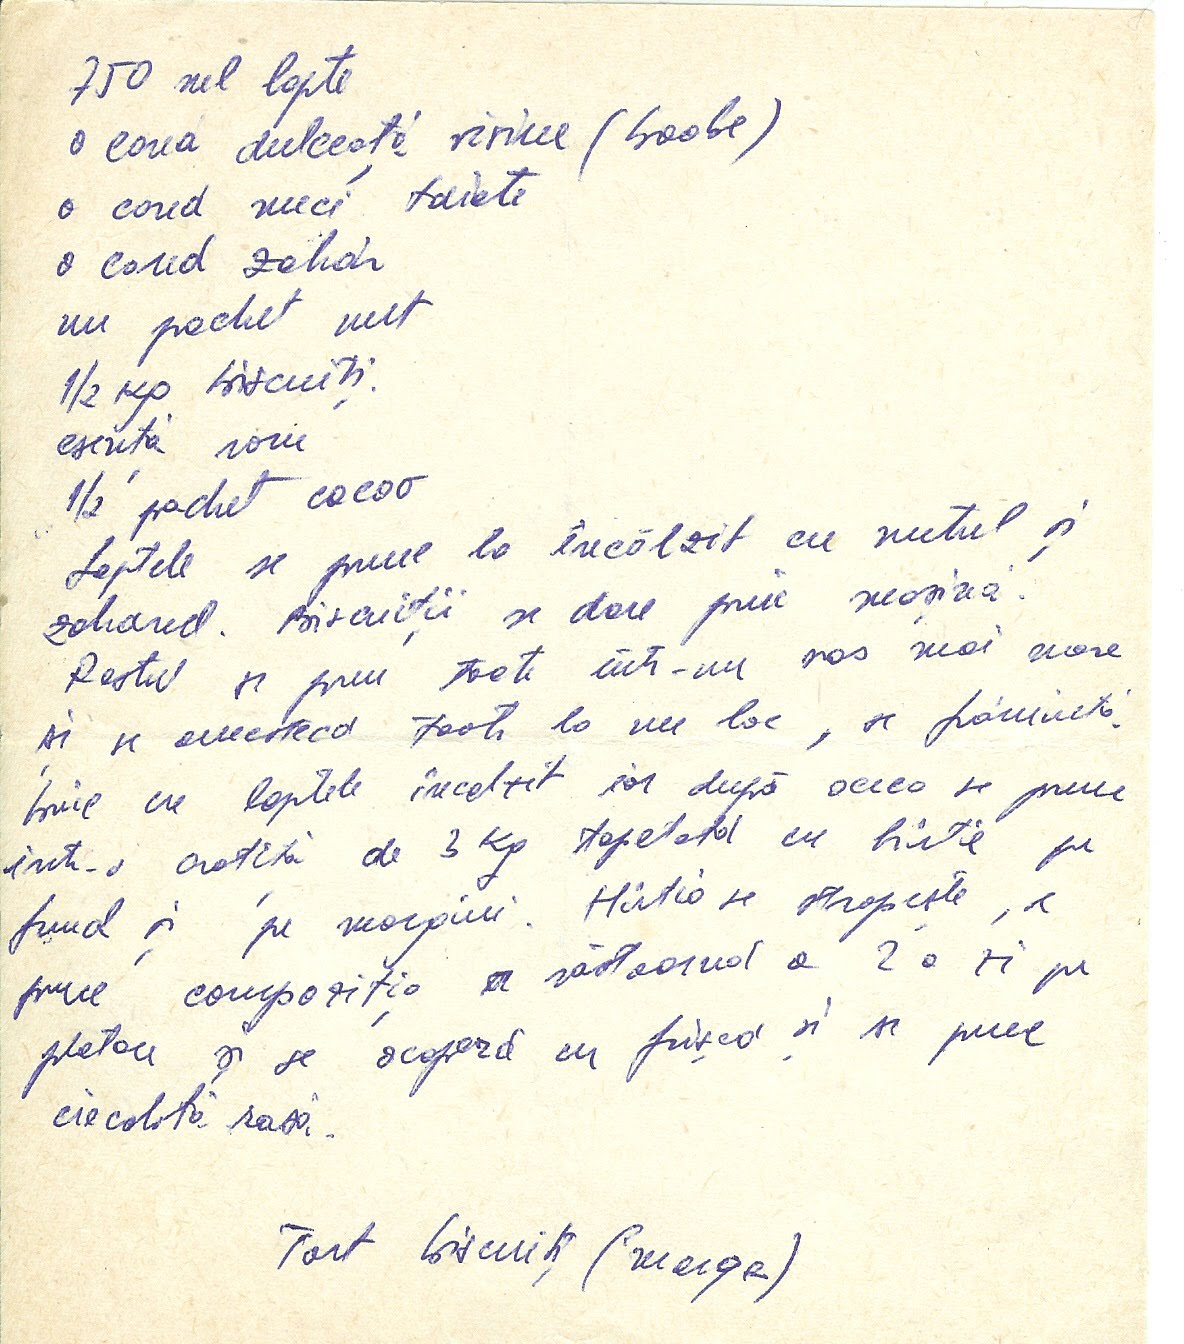 750 ml lapte
o cană dulceață vișine (boabe)
o cană nuci tăiate
o cană zahăr
un pachet unt
1/2 kg biscuiți.
esență rom
1/2 pachet cacao
Laptele se pune la încălzit cu untul și
zahărul. Biscuiții se dau prin mașină.
Restul se pun toate într-un vas mai mare
și se amestecă toate la un loc, se frămîntă
bine cu laptele încălzit iar după aceea se pune
într-o cratiță de 3 kg tapetată cu hîrtie pe
fund și pe margini. Hîrtia se stropește, se
pune compoziția se răstoarnă a 2 a zi pe
platou și se acoperă cu frișcă și se pune
ciocolată rasă.
Tort biscuiți (marga)